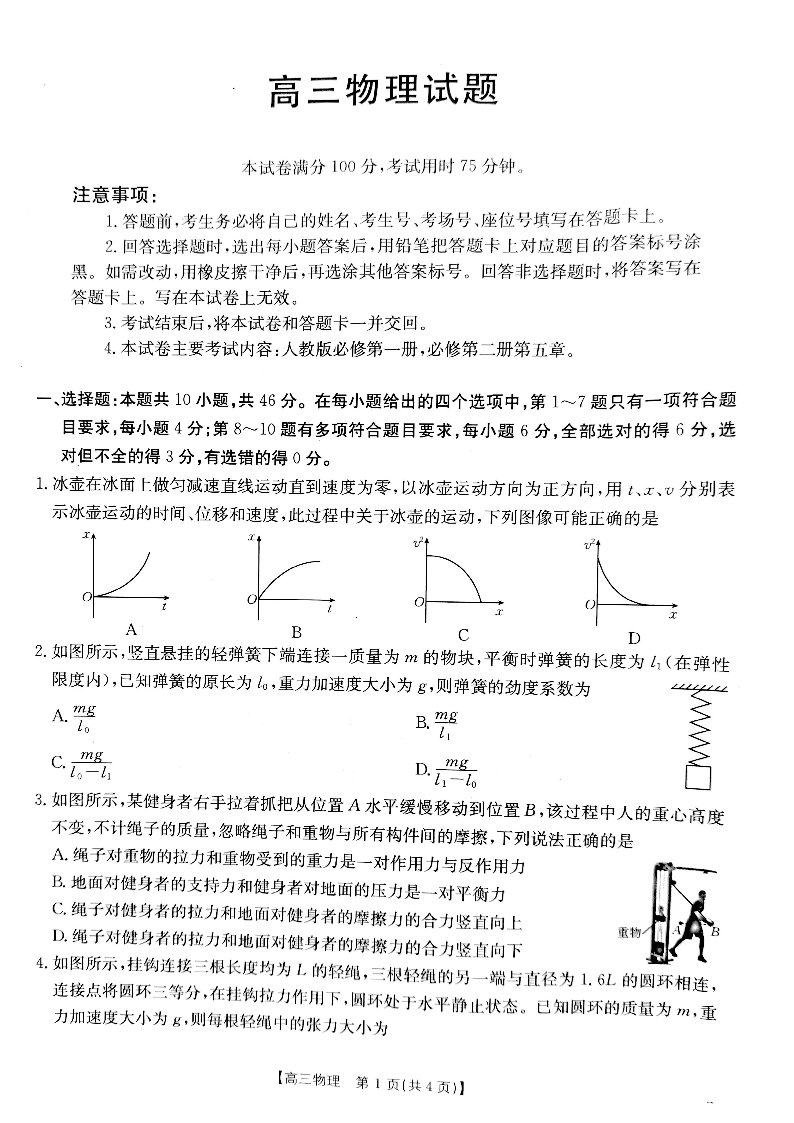 高三物理试题
本试卷满分100分,考试用时75分钟。
注意事项:
1.答题前,考生务必将自己的姓名、考生号、考场号、座位号填写在答题卡上。
2.回答选择题时,选出每小题答案后,用铅笔把答题卡上对应题目的答案标号涂
黑。如需改动,用橡皮擦干净后,再选涂其他答案标号。回答非选择题时,将答案写在
答题卡上。写在本试卷上无效。
3.考试结束后,将本试卷和答题卡一并交回。
4.本试卷主要考试内容:人教版必修第一册,必修第二册第五章。
一、选择题:本题共10小题,共46分。在每小题给出的四个选项中,第1~7题只有一项符合题
目要求,每小题4分;第8~10题有多项符合题目要求,每小题6分,全部选对的得6分,选
对但不全的得3分,有选错的得0分。
1.冰壶在冰面上做匀减速直线运动直到速度为零,以冰壶运动方向为正方向,用t、x、v分别表
示冰壶运动的时间、位移和速度,此过程中关于冰壶的运动,下列图像可能正确的是
x x v² v²
O t O t O x O x
A B C D
2.如图所示,竖直悬挂的轻弹簧下端连接一质量为m的物块,平衡时弹簧的长度为l₁(在弹性
限度内),已知弹簧的原长为l₀,重力加速度大小为g,则弹簧的劲度系数为
A. mg/l₀ B. mg/l₁
C. mg/(l₀-l₁) D. mg/(l₁-l₀)
3.如图所示,某健身者右手拉着抓把从位置A水平缓慢移动到位置B,该过程中人的重心高度
不变,不计绳子的质量,忽略绳子和重物与所有构件间的摩擦,下列说法正确的是
A.绳子对重物的拉力和重物受到的重力是一对作用力与反作用力
B.地面对健身者的支持力和健身者对地面的压力是一对平衡力
C.绳子对健身者的拉力和地面对健身者的摩擦力的合力竖直向上
D.绳子对健身者的拉力和地面对健身者的摩擦力的合力竖直向下
重物 A B
4.如图所示,挂钩连接三根长度均为L的轻绳,三根轻绳的另一端与直径为1.6L的圆环相连,
连接点将圆环三等分,在挂钩拉力作用下,圆环处于水平静止状态。已知圆环的质量为m,重
力加速度大小为g,则每根轻绳中的张力大小为
【高三物理 第1页(共4页)】